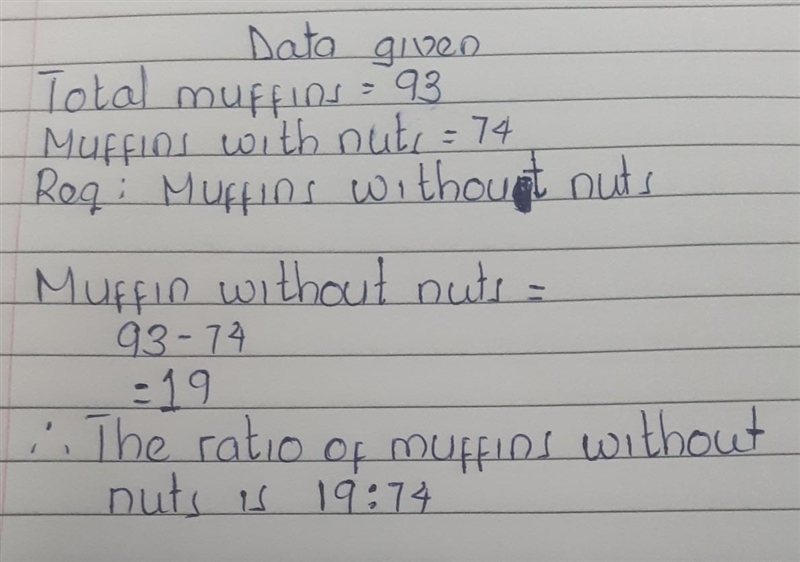 Data given
Total muffins = 93
Muffins with nuts = 74
Req: Muffins without nuts
Muffin without nuts =
93 - 74
= 19
∴ The ratio of muffins without
nuts is 19:74